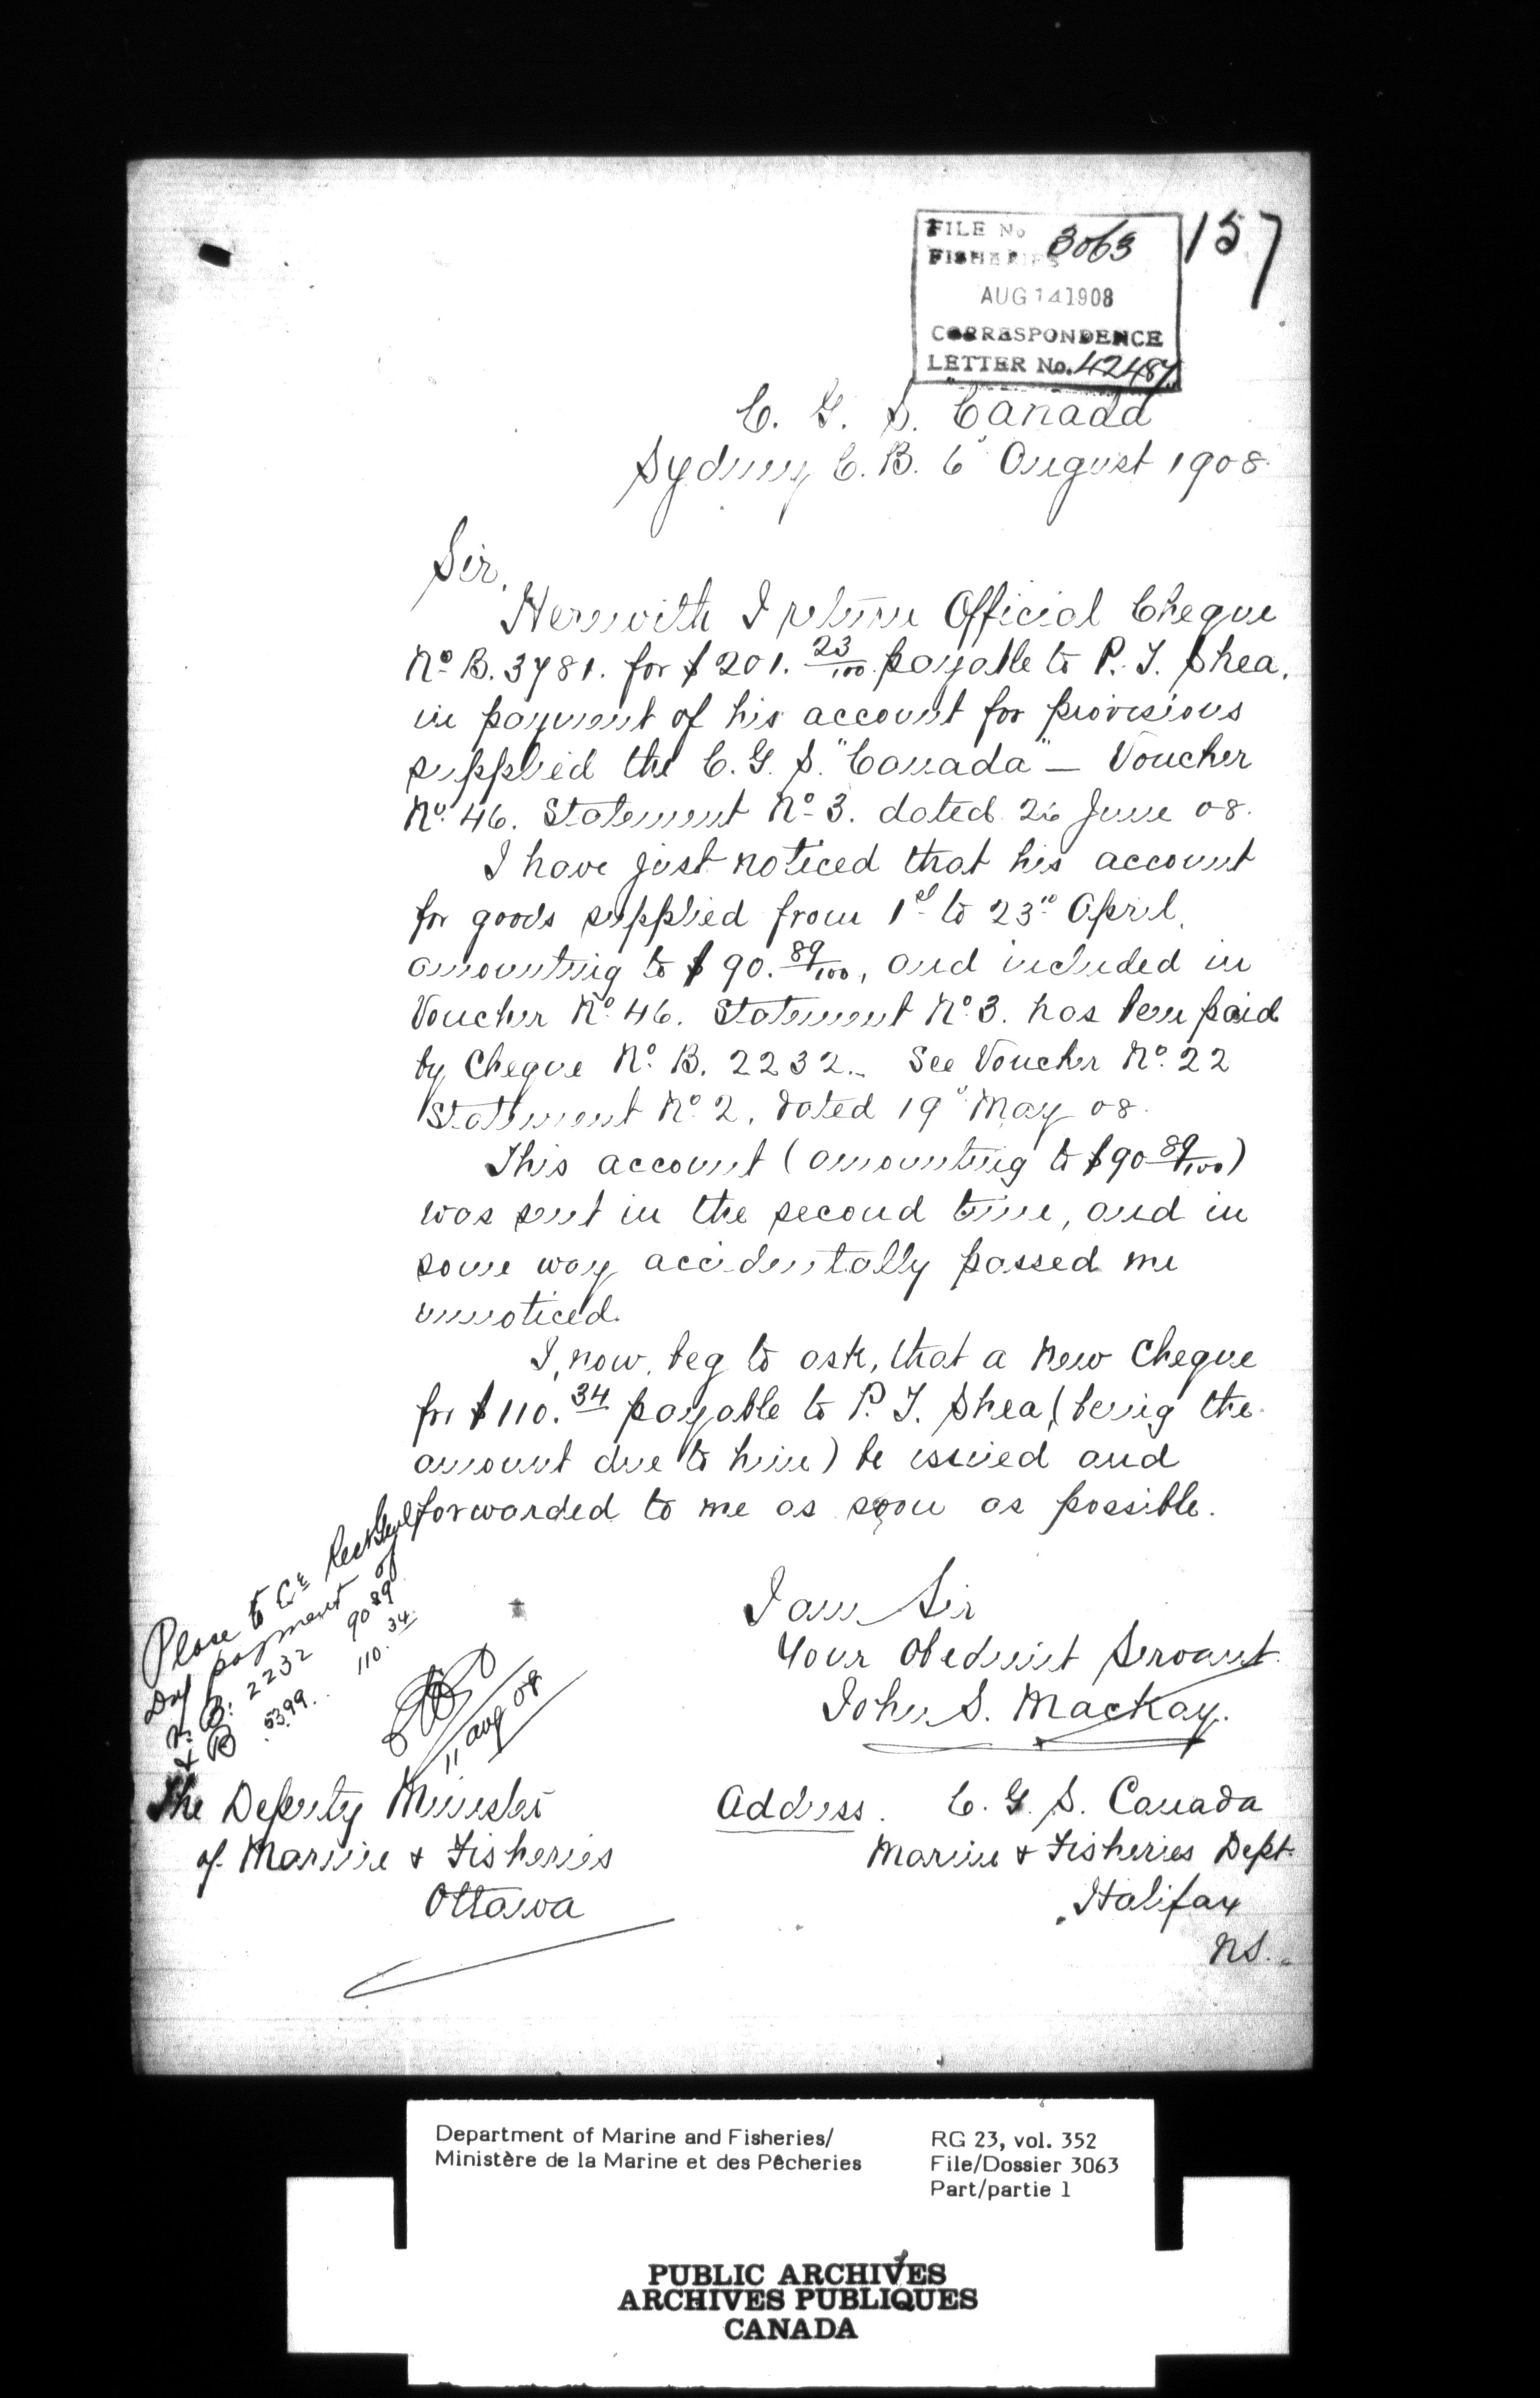 157
FILE No 3063
FISHERIES
AUG 14 1908
CORRESPONDENCE
LETTER No. 42487
C. G. S. "Canada"
Sydney C. B. 6" August 1908.
Sir,
Herewith I return Official Cheque
No. B. 3781. for $201. 23/100 payable to P. J. Shea,
in payment of his account for provisions
supplied the C. G. S. "Canada" — Voucher
No. 46. Statement No. 3. dated 26 June 08.
I have just noticed that his account
for goods supplied from 1st to 23rd April,
amounting to $90. 89/100, and included in
Voucher No. 46. Statement No. 3. has been paid
by Cheque No. B. 2232. — See Voucher No. 22
Statement No. 2, dated 19" May 08.
This account (amounting to $90 89/100)
was sent in the second time, and in
some way accidentally passed me
unnoticed.
I, now, beg to ask, that a new Cheque
for $110. 34 payable to P. J. Shea (being the
amount due to him) be issued and
forwarded to me as soon as possible.
I am Sir
Your Obedient Servant.
John S. Mackay.
Place to
payment of
B. 2232 90 89
& B 5399. 110. 34
11 Aug 08
The Deputy Minister
of Marine & Fisheries
Ottawa
Address. C. G. S. Canada
Marine & Fisheries Dept.
Halifax
NS.
Department of Marine and Fisheries/
Ministère de la Marine et des Pêcheries
RG 23, vol. 352
File/Dossier 3063
Part/partie 1
PUBLIC ARCHIVES
ARCHIVES PUBLIQUES
CANADA